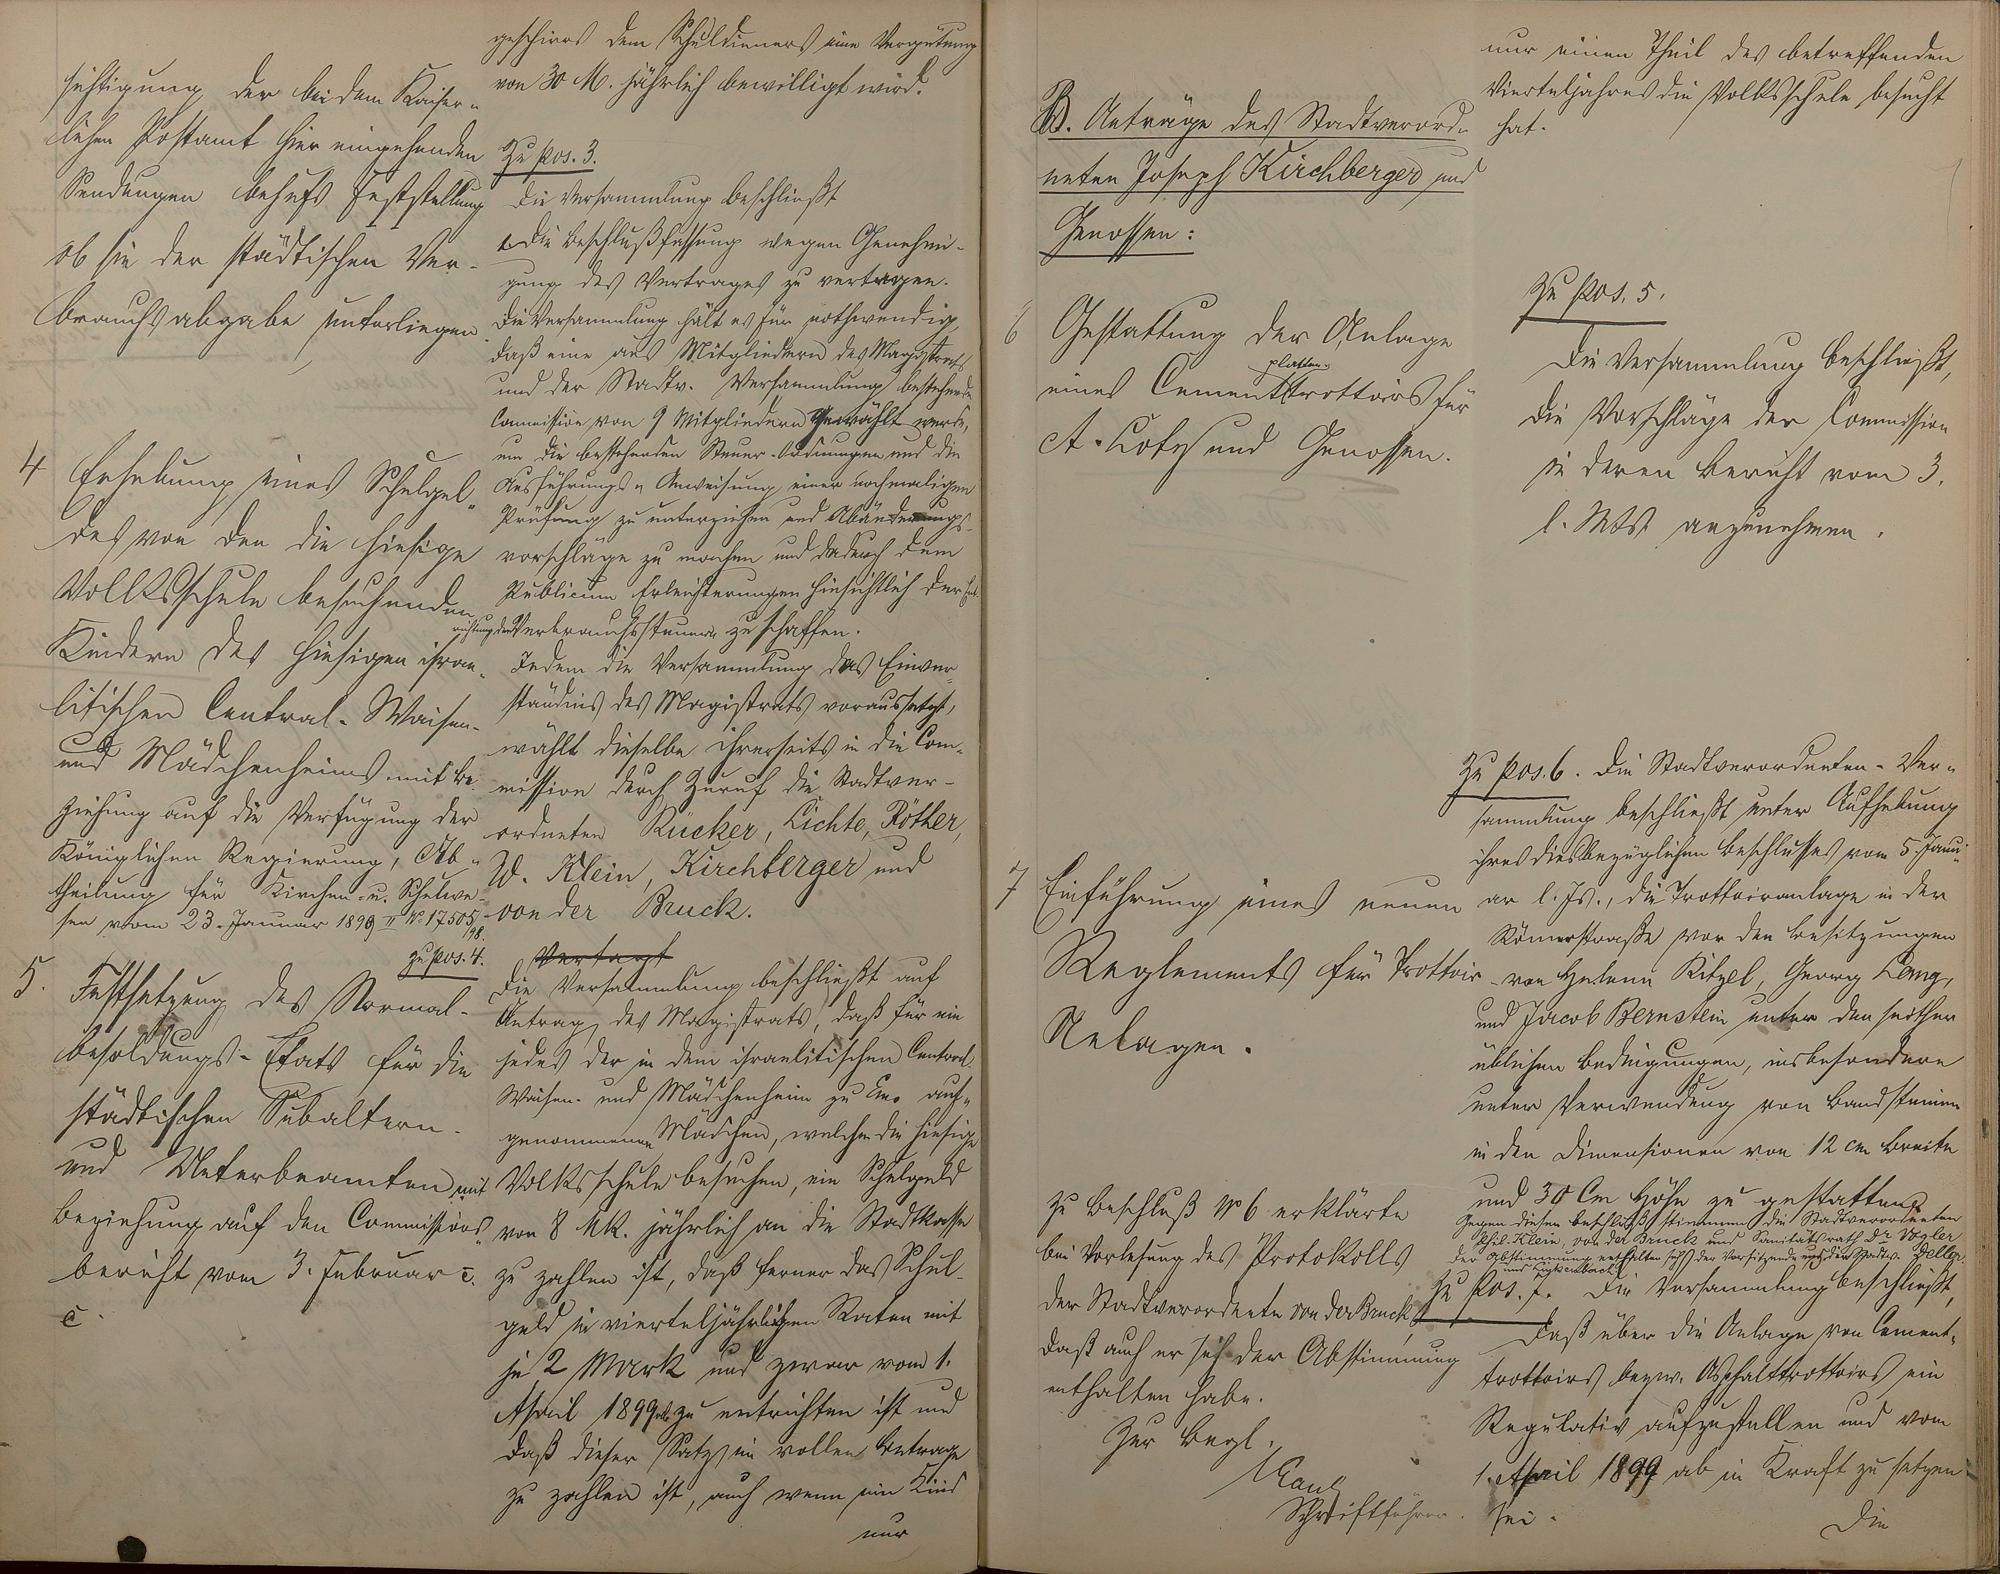 sichtigung der bei dem Kaiser-
lichen Postamt hier eingehenden
Sendungen behufs Feststellung
ob sie der städtischen Ver-
brauchsabgabe unterliegen.
4 Erhebung eines Schulgel-
des von den die hiesige
Volksschule besuchenden
Kindern des hiesigen israe-
litischen Central-Waisen-
und Mädchenheims mit Be-
ziehung auf die Verfügung der
Königlichen Regierung, Ab-
theilung für Kirchen- u. Schulwe-
sen vom 23. Januar 1899 II No 17505/98.
5. Festsetzung des Normal-
besoldungs-Etats für die
städtischen Subaltern-
und Unterbeamten mit
Beziehung auf den Commissions-
bericht vom 3. Februar c.
c.
geschirrs dem Schuldieners eine Vergütung
von 30 M. jährlich bewilligt wird.
Zu pos. 3.
Die Versammlung beschließt
die Beschlußfassung wegen Genehmi-
gung des Vertrages zu vertagen.
Die Versammlung hält es für nothwendig,
daß eine aus Mitgliedern des Magistrats
und der Stadtv. Versammlung bestehende
Commission von 9 Mitgliedern gewählt werde,
um die bestehenden Steuer-Ordnungen und die
Ausführungs-Anweisung einer nochmaligen
Prüfung zu unterziehen und Abänderungs-
vorschläge zu machen und dadurch dem
Publicum Erleichterungen hinsichtlich der Ent-
richtung der Verbrauchssteuer zu schaffen.
Indem die Versammlung das Einver-
ständnis des Magistrats voraussetzt,
wählt dieselbe ihrerseits in die Com-
mission durch Zuruf die Stadtver-
ordneten Rücker, Lichte, Röther,
W. Klein, Kirchberger und
von der Bruck.
zu pos. 4. Vertagt
Die Versammlung beschließt auf
Antrag des Magistrats, daß für ein
jedes der in dem israelitischen Central-
Waisen- und Mädchenheim zu Ems auf-
genommenen Mädchen, welche die hiesige
Volksschule besuchen, ein Schulgeld
von 8 Mk. jährlich an die Stadtkasse
zu zahlen ist, daß ferner das Schul-
geld in vierteljährlichen Raten mit
je 2 Mark und zwar vom 1.
April 1899 ab zu entrichten ist und
daß dieser Satz im vollen Betrage
zu zahlen ist, auch wenn ein Kind
nur
B. Anträge des Stadtverord-
neten Joseph Kirchberger und
Genossen:
6 Gestattung der Anlage
eines Cementplatten-
trottoirs für
A. Lotz und Genossen.
7 Einführung eines neuen
Reglements für Trottoir-
Anlagen.
Zu Beschluß No 6 erklärte
bei Vorlesung des Protokolls
der Stadtverordnete von der Bruck,
daß auch er sich der Abstimmung
enthalten habe.
Zur Begl.
Schriftführer.
nur einen Theil des betreffenden
Vierteljahres die Volksschule besucht
hat.
Zu pos. 5.
Die Versammlung beschließt,
die Vorschläge der Commission
in deren Bericht vom 3.
l. Mts. anzunehmen.
Zu pos. 6. Die Stadtverordneten-Ver-
sammlung beschließt unter Aufhebung
ihres diesbezüglichen Beschlusses vom 5. Janu-
ar l. Js., die Trottoiranlage in der
Römerstraße vor den Besitzungen
von Helene Kitzel, Georg Lang,
und Jacob Bernstein unter den seither
üblichen Bedingungen, insbesondere
unter Verwendung von Bandsteinen
in den Dimensionen von 12 cm Breite
und 30 Cm Höhe zu gestatten.
Gegen diesen Beschluß stimmen die Stadtverordneten
Phil. Klein, von der Bruck und Sanitätsrath Dr Vogler
der Abstimmung enthalten sich der Vorsitzende und die Stadtv.
Zu Pos. 7. Die Versammlung beschließt,
daß über die Anlage von Cement-
trottoirs bezw. Asphalttrottoirs ein
Regulativ aufzustellen und vom
1. April 1899 ab in Kraft zu setzen
sei.
Die